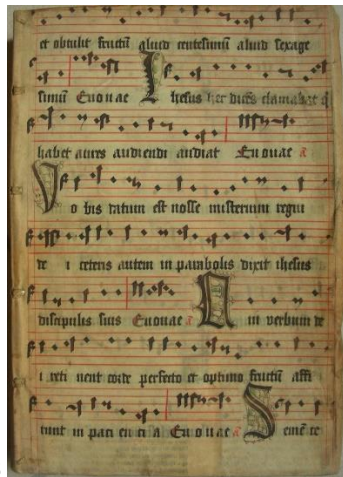 et obtulit fructū aliud centesimū aliud sexage
simū Euouae Ihesus hec dicēs clamabat q̄
habet aures audiendi audiat Euouae a
Vo bis datum est nosse misterium regni
de i ceteris autem in parabolis dixit ihesus
discipulis suis Euouae a Qui verbum de
i reti nent corde perfecto et optimo fructū affe
runt in paci en ci a Euouae a Semē ce